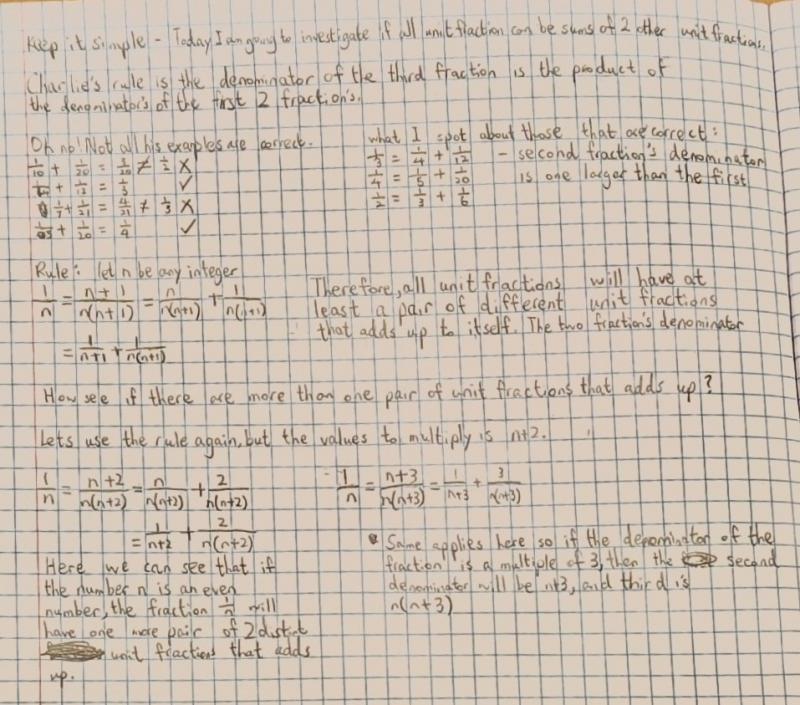 Keep it simple - Today I am going to investigate if all unit fraction can be sums of 2 other unit fractions.
Charlie's rule is the denominator of the third fraction is the product of
the denominator's of the first 2 fraction's.
Oh no! Not all his examples are correct.
1/10 + 1/20 = 3/20 ≠ 1/2 X
+ 1/12 = 1/3 ✓
1/7 + 1/21 = 4/21 ≠ 1/3 X
+ 1/20 = 1/4 ✓
what I spot about those that are correct:
1/3 = 1/4 + 1/12 - second fraction's denominator
1/4 = 1/5 + 1/20 is one larger than the first
1/2 = 1/3 + 1/6
Rule: let n be any integer
1/n = n+1/n(n+1) = n/n(n+1) + 1/n(n+1)
= 1/n+1 + 1/n(n+1)
Therefore, all unit fractions will have at
least a pair of different unit fractions
that adds up to itself. The two fraction's denominator
How see if there are more than one pair of unit fractions that adds up?
Lets use the rule again, but the values to multiply is n+2.
1/n = n+2/n(n+2) = n/n(n+2) + 2/n(n+2)
= 1/n+2 + 2/n(n+2)
Here we can see that if
the number n is an even
number, the fraction 1/n will
have one more pair of 2 distict
unit fractions that adds
up.
1/n = n+3/n(n+3) = 1/n+3 + 3/n(n+3)
Same applies here so if the denominator of the
fraction is a multiple of 3, then the second
denominator will be n+3, and third is
n(n+3)